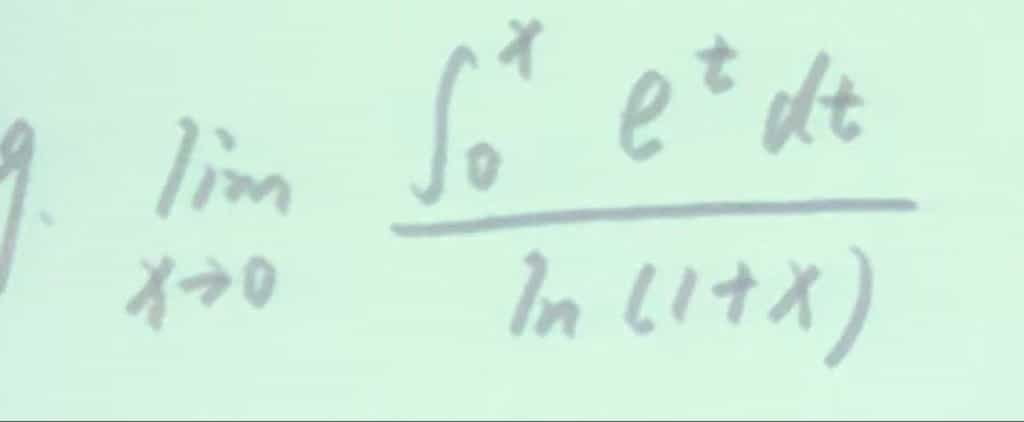 9. lim_{x→0} \frac{∫_0^x e^t dt}{ln(1+x)}